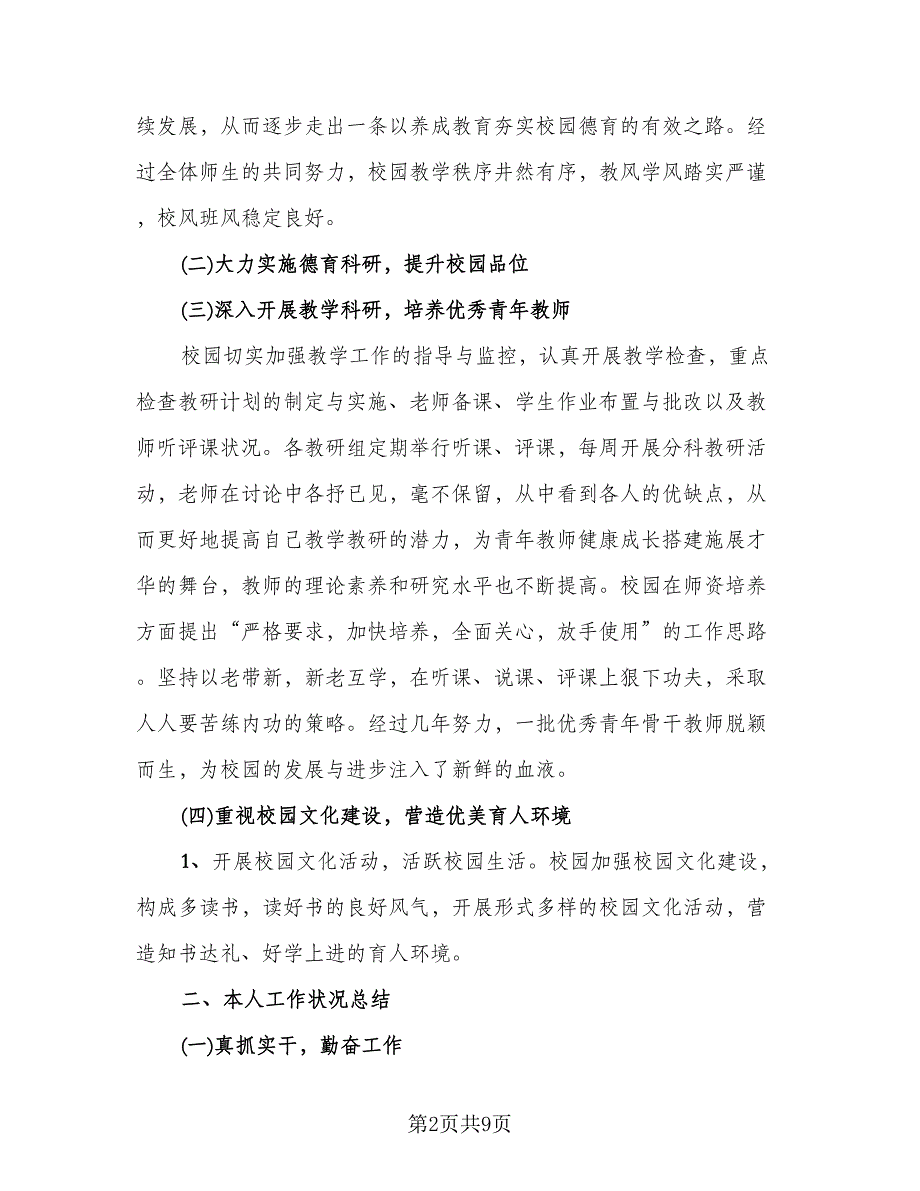 续发展，从而逐步走出一条以养成教育夯实校园德育的有效之路。经
过全体师生的共同努力，校园教学秩序井然有序，教风学风踏实严谨
，校风班风稳定良好。
(二)大力实施德育科研，提升校园品位
(三)深入开展教学科研，培养优秀青年教师
校园切实加强教学工作的指导与监控，认真开展教学检查，重点
检查教研计划的制定与实施、老师备课、学生作业布置与批改以及教
师听评课状况。各教研组定期举行听课、评课，每周开展分科教研活
动，老师在讨论中各抒已见，毫不保留，从中看到各人的优缺点，从
而更好地提高自己教学教研的潜力，为青年教师健康成长搭建施展才
华的舞台，教师的理论素养和研究水平也不断提高。校园在师资培养
方面提出“严格要求，加快培养，全面关心，放手使用”的工作思路
。坚持以老带新，新老互学，在听课、说课、评课上狠下功夫，采取
人人要苦练内功的策略。经过几年努力，一批优秀青年骨干教师脱颖
而生，为校园的发展与进步注入了新鲜的血液。
(四)重视校园文化建设，营造优美育人环境
1、开展校园文化活动，活跃校园生活。校园加强校园文化建设，
构成多读书，读好书的良好风气，开展形式多样的校园文化活动，营
造知书达礼、好学上进的育人环境。
二、本人工作状况总结
(一)真抓实干，勤奋工作
第2页共9页